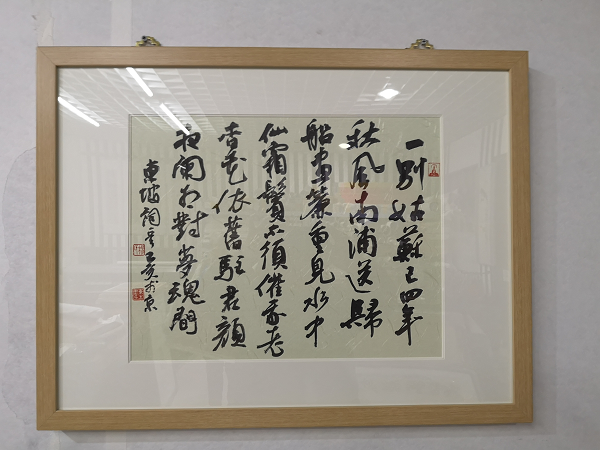 一別姑蘇已四年
秋风南浦送歸
船畫簾重見水中
仙霜鬢不須催我老
杏花依舊駐君顏
夜闌相對夢魂間
東坡詞